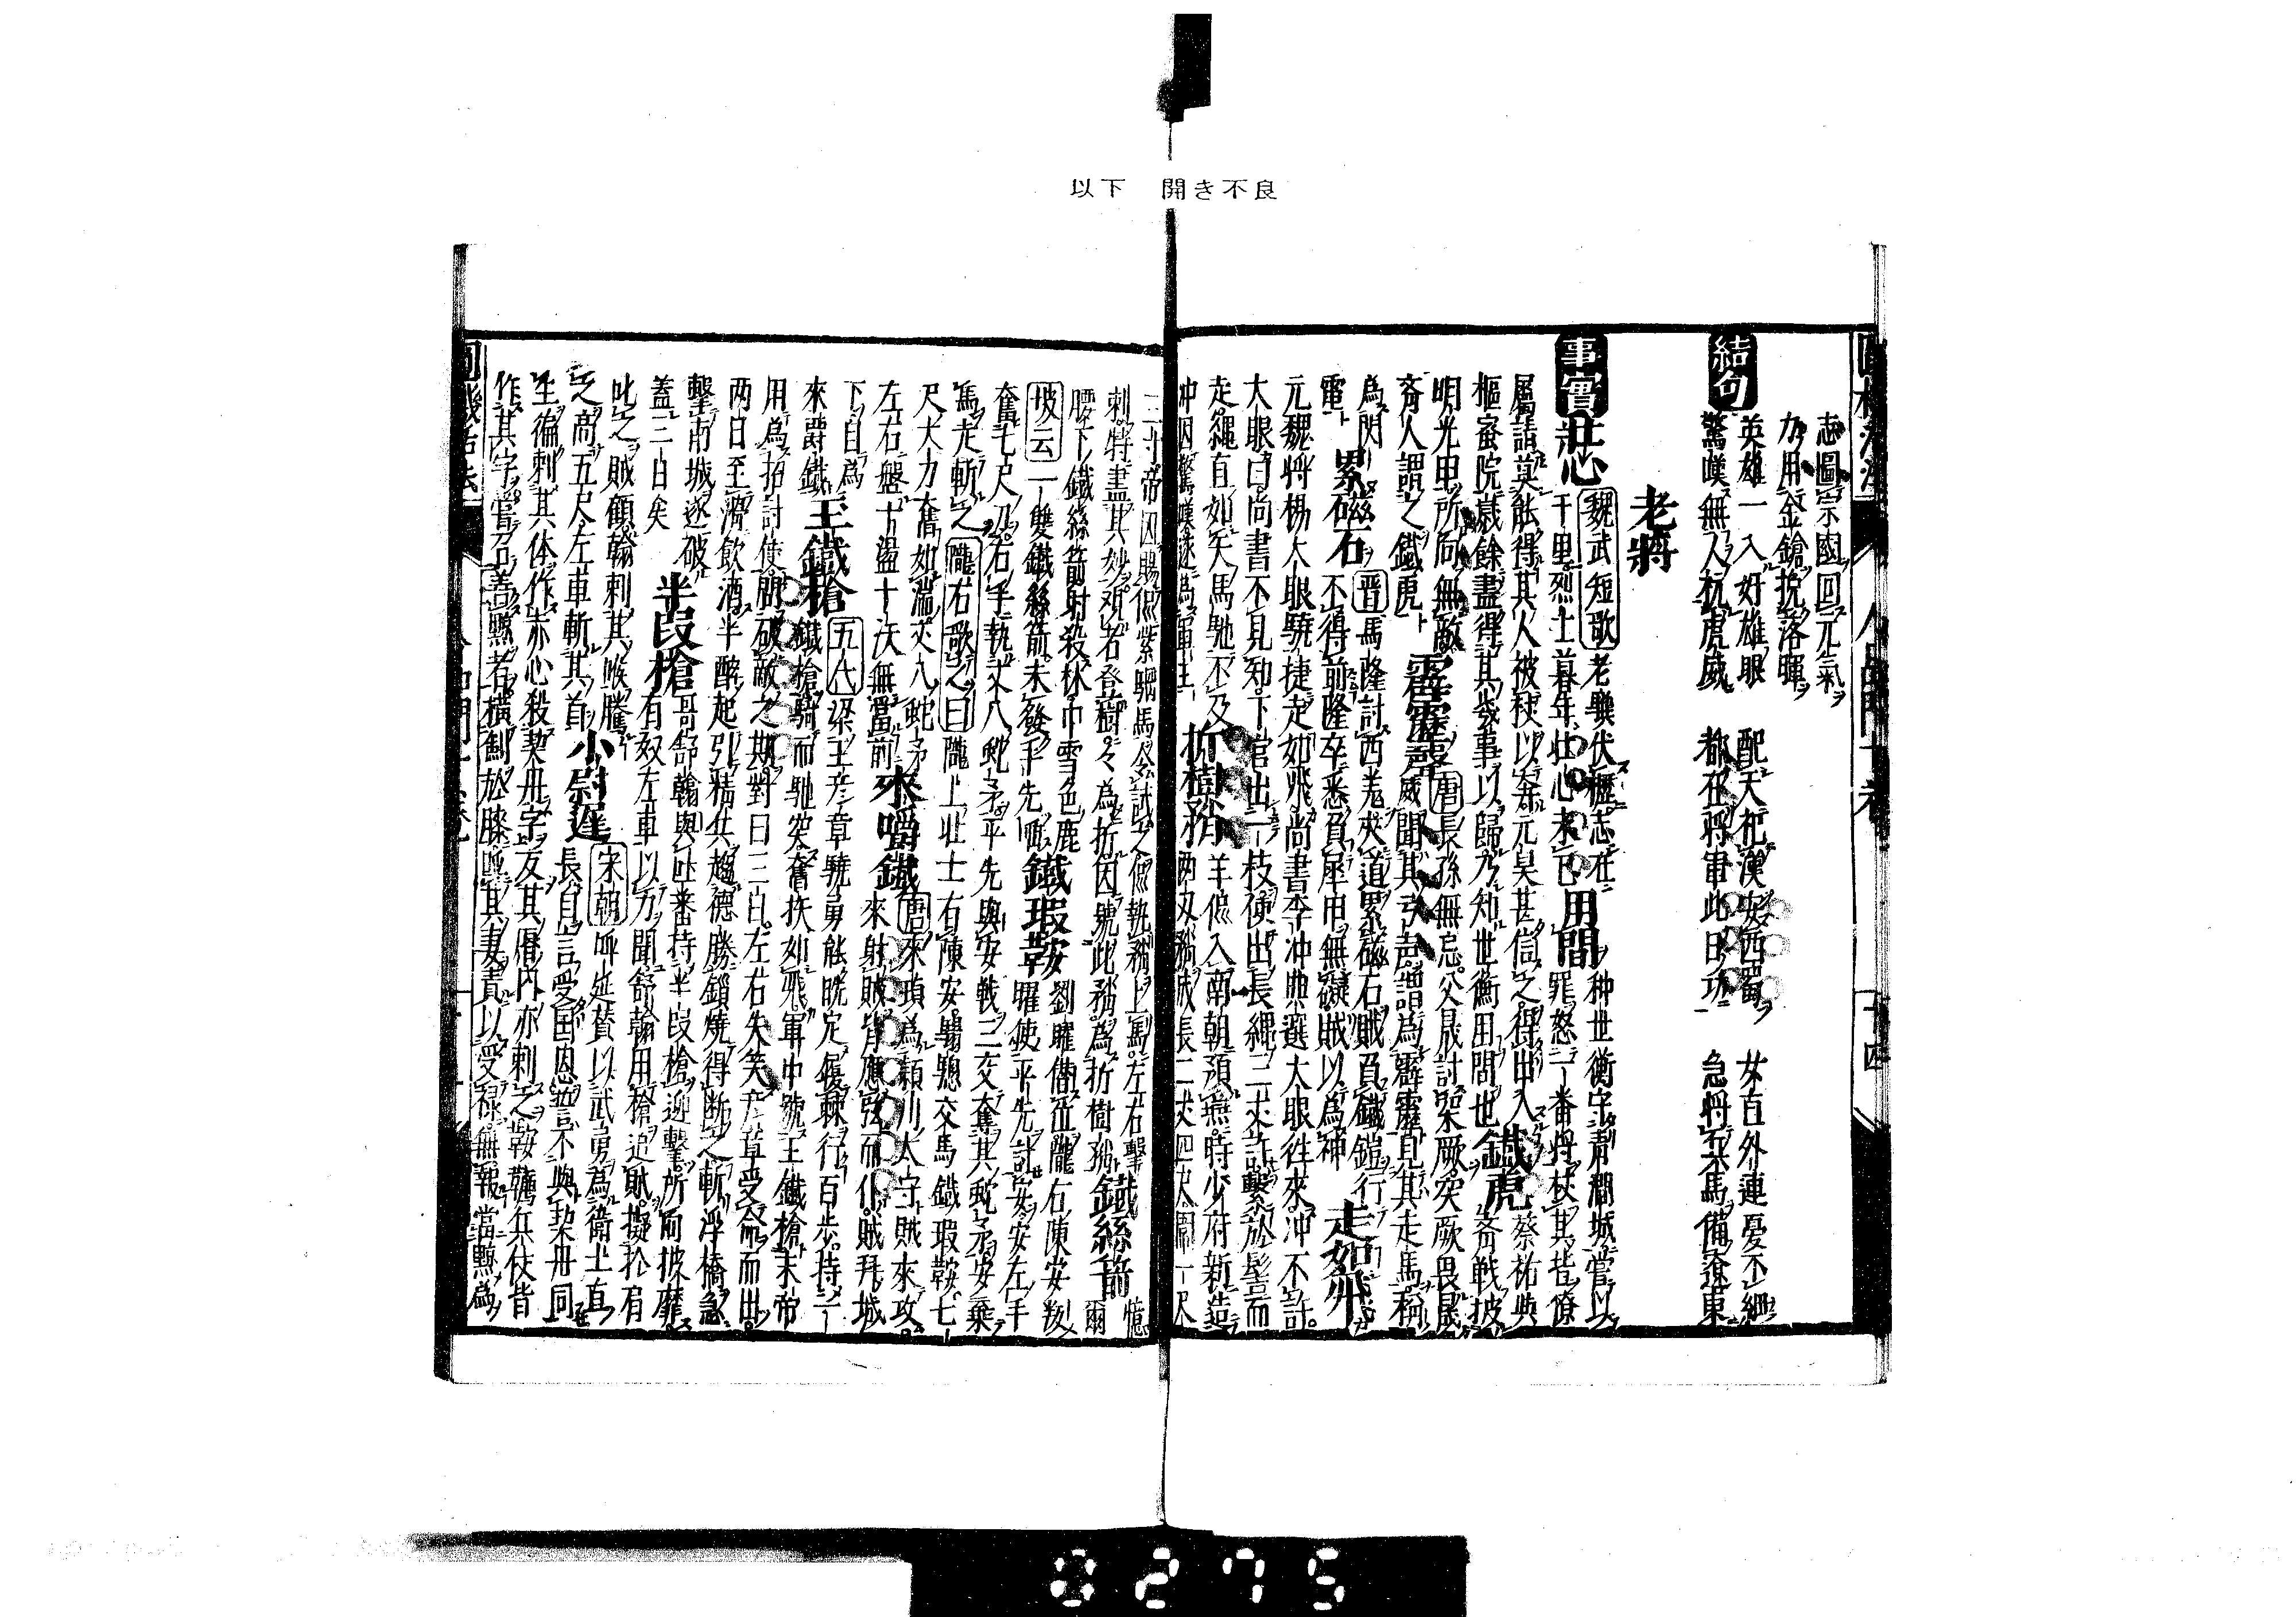 以下　開き不良
志圖宗國回元氣
力用金鎗挽落暉
結句
英雄一入好雄眼　配天祀漢安西蜀　女直外連憂不細
驚嘆無人抗虎威　都在將軍此日功　急將五馬備遼東
老將
事實
壯志
魏武短歌
老驥伏櫪志在
千里烈士暮年壯心未已
用間
种世衡守青澗城嘗以
罪怒一番將杖其背僚
屬請莫能得其人被杖以奔元昊甚信之得出入
樞密院歲餘盡得其事以歸乃知世衡用間也
鐵虎
蔡祐與
齊戰披
明光甲所向無敵
齊人謂之鐵虎
霹靂聲
唐
長孫無忌父晟討突厥突厥畏晟
威聞其弓声謂為霹靂見其走馬稱
為閃電
累磁石
晋
馬隆討西羌夾道累磁石賊負鐵鎧行
不得前隆卒悉負犀甲無礙賊以為神
走如飛
元魏將楊大眼驍捷走如飛尚書李冲典選大眼徃來冲不許
大眼曰尚書不見知下官出一枝便出長繩三丈許繫於髻而
走繩直如矢馬馳不及
冲因驚嘆遂為軍主
折樹矟
羊侃入南朝預時少府新造
兩刃矟成長二丈四尺圍一尺
三寸帝因賜侃紫騮馬令試之侃執矟上馬左右擊
刺特盡其妙觀者登樹々為折因號此矟為折樹矟
鐵絲箭
腰下鐵絲箭射殺林中雪色鹿
坡云
一雙鐵絲箭未發手先
鐵瑕鞍
劉曜僭竝隴右陳安叛
曜使平先討安安左手
奮七尺刀右手執丈八蛇矛平先與安戰三交奪其蛇矛安棄
馬走斬之
隴右歌之曰
隴上壯士有陳安驄交馬鐵瑕鞍七
尺大刀奮如湍丈八蛇矛
左右盤十盪十决無當前
來嚼鐵
唐
來瑱為潁川太守賊來攻
來射賊皆應弦而仆賊拜城
下自為
來爵鐵
王鐵槍
五代
梁王彦章驍勇能跣足履棘行百步持一
鐵槍騎而馳突奮疾如飛軍中號王鐵槍末帝
用為招討使問破敵之期對曰三日左右失笑彦章受命而出
兩日至滑飲酒半酣起引精兵趨德勝鎖燒得断之斬浮橋急
擊南城遂破
蓋三日矣
半段槍
哥舒翰與吐蕃持半段槍迎擊所向披靡
有奴左車以力聞舒翰用槍追賊擬於肩
叱之賊顧翰刺其喉騰
之高五尺左車斬其首
小尉遲
宋朝
呼延賛以武勇為衛士直
長自言受國恩誓不與契丹同
生徧刺其体作赤心殺契丹字及其唇内亦刺之鞍韉兵仗皆
作其字嘗召善黥者横劔於膝呼其妻責以受禄無報當黥為
0275